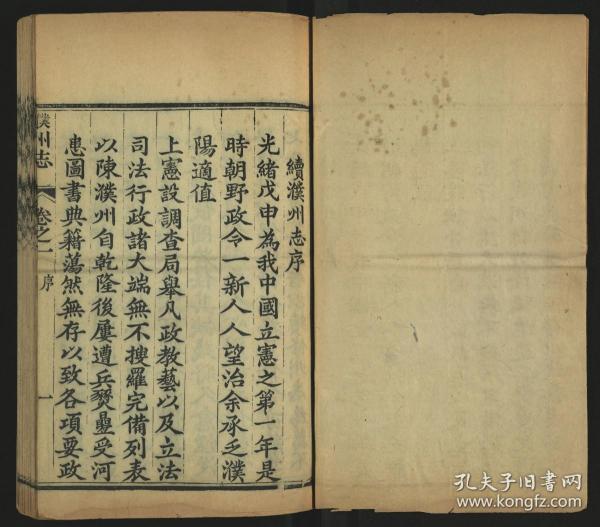 續濮州志序
光緒戊申為我中國立憲之第一年是
時朝野政令一新人人望治余承乏濮
陽適值
上憲設調查局舉凡政教藝以及立法
司法行政諸大端無不搜羅完備列表
以陳濮州自乾隆後屢遭兵燹疊受河
患圖書典籍蕩然無存以致各項要政
濮州志
卷之一
序
一
孔夫子旧书网
www.kongfz.com